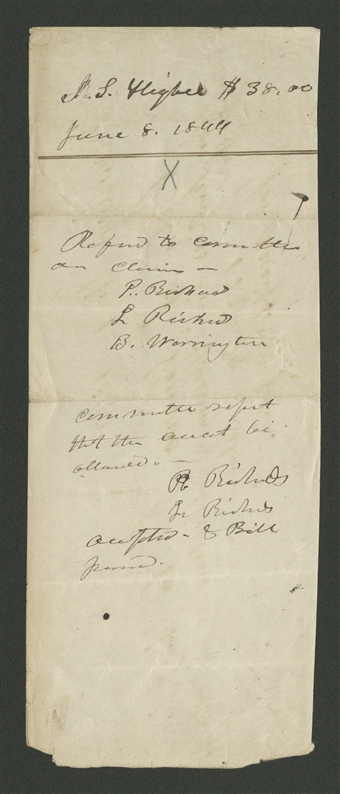 S. Higbee $38.00
June 8. 1844
X
Referd to committee
on Claims —
P. Richards
L Richards
B. Warrington
Committe report
that the accot be
allowed. —
P Richards
L Richards
accepted - & Bill
paid.